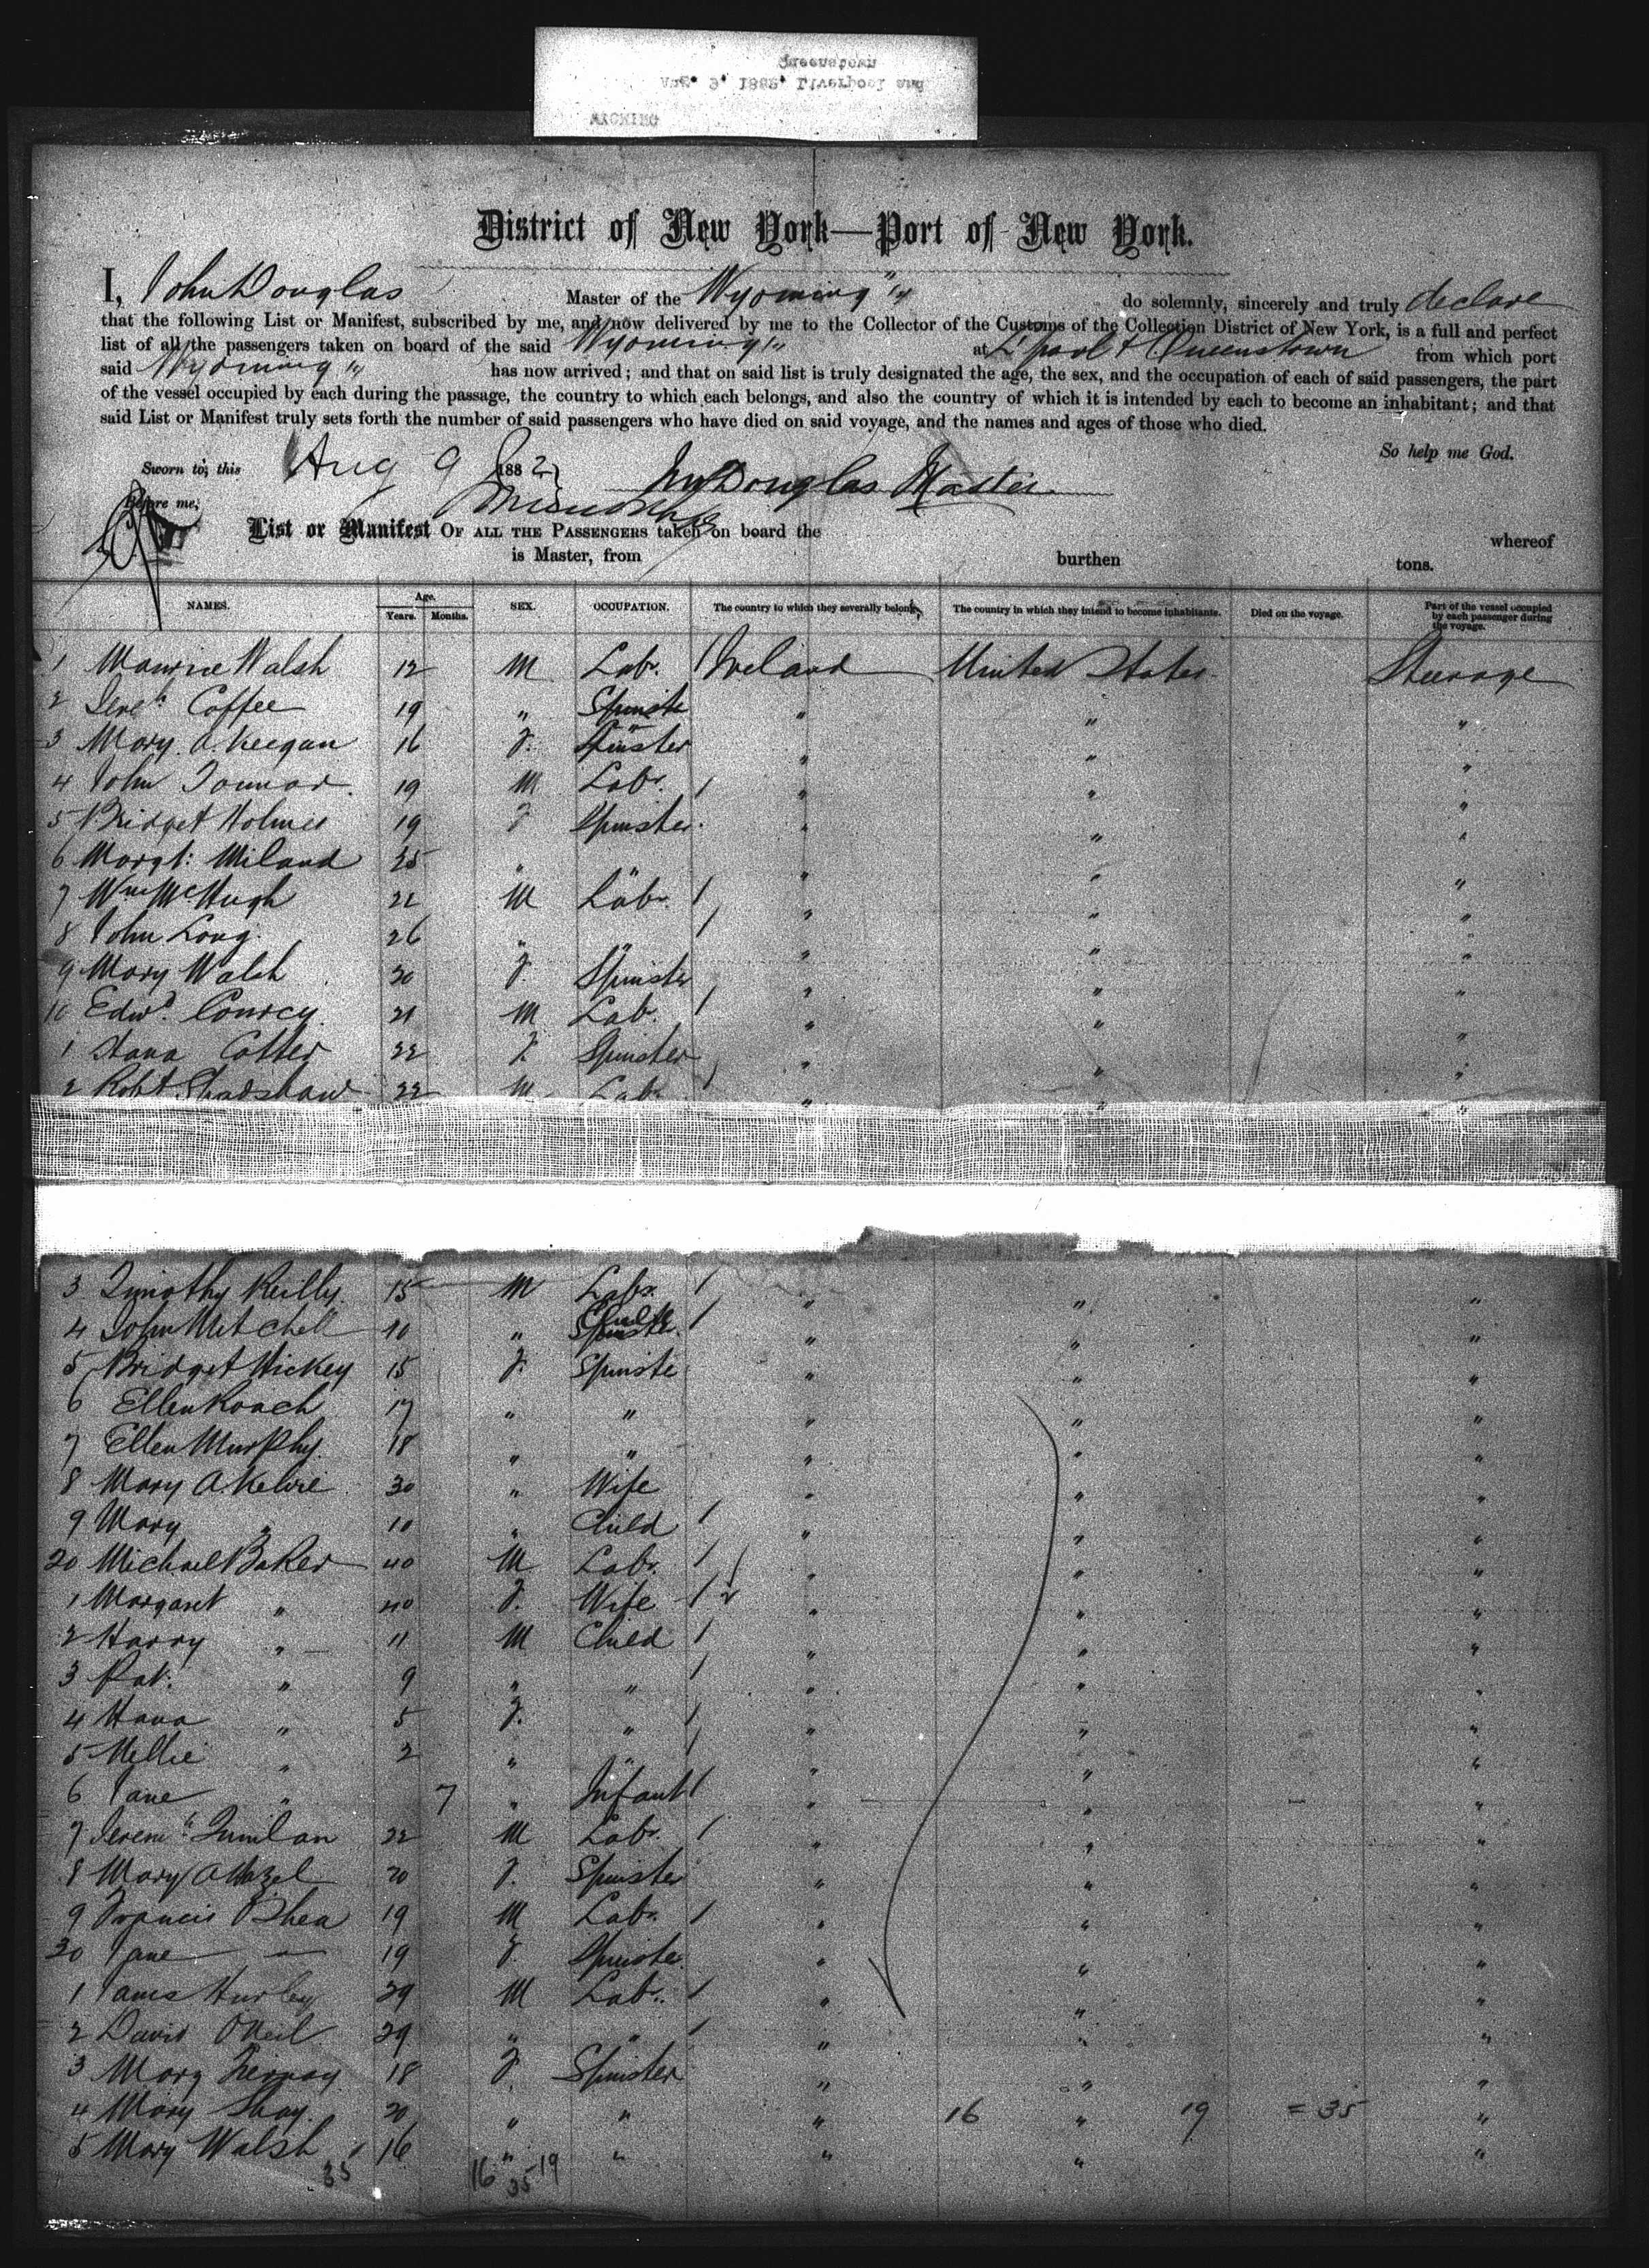 WYOMING
Aug. 9, 1882, Liverpool and
Queenstown
District of New York—Port of New York.
I, John Douglas Master of the Wyoming " do solemnly, sincerely and truly declare
that the following List or Manifest, subscribed by me, and now delivered by me to the Collector of the Customs of the Collection District of New York, is a full and perfect
list of all the passengers taken on board of the said Wyoming " at L'pool & Queenstown from which port
said Wyoming " has now arrived; and that on said list is truly designated the age, the sex, and the occupation of each of said passengers, the part
of the vessel occupied by each during the passage, the country to which each belongs, and also the country of which it is intended by each to become an inhabitant; and that
said List or Manifest truly sets forth the number of said passengers who have died on said voyage, and the names and ages of those who died.
So help me God.
Sworn to, this Aug 9 1882 Douglas Master
Before me,
List or Manifest OF ALL THE PASSENGERS taken on board the whereof
is Master, from burthen tons.
NAMES. Age. Years. Months. SEX. OCCUPATION. The country to which they severally belong. The country in which they intend to become inhabitants. Died on the voyage. Part of the vessel occupied by each passenger during the voyage.
1 Maurice Walsh 12 M Labr. / Ireland United States Steerage
2 Jereh Coffee 19 " Spinste " " "
3 Mary A. Keegan 16 F. Spinster " " "
4 John 19 M Labr. / " " "
5 Bridget Holmes 19 F Spinster. " " "
6 Margt: Miland 25 " " " " "
7 Wm McHugh 22 M Labr. / " " "
8 John Long. 26 " " / " " "
9 Mary Walsh 20 F. Spinster " " "
10 Edwd. Conrcy 21 M Lab. / " " "
1 Hana Cotter 22 F. Spinster " " "
2 Robt Shadshaw 22 M Lab. / " " "
3 Timothy Reilly. 15 M Labr. / " " "
4 John Mitchell 10 " Child / " " "
5 Bridget Hickey 15 F. Spinste " " "
6 Ellen Roach 17 " " " " "
7 Ellen Murphy. 18 " " " " "
8 Mary A. 30 " Wife " " "
9 Mary " 10 " Child / " " "
20 Michael Baker 40 M Labr. / " " "
1 Margaret " 40 F. Wife / " " "
2 Harry " 11 M Child / " " "
3 Pat: " 9 " " / " " "
4 Hana " 5 F. " / " " "
5 Nellie " 2 " " / " " "
6 Jane " 7 " Infant / " " "
7 Jerem:h Quinlan 22 M Labr. / " " "
8 Mary A 20 F. Spinster " " "
9 Francis O'Shea 19 M Labr. / " " "
30 Jane " 19 F. Spinster " " "
1 James Hurley 29 M Labr. / " " "
2 David O'Neil 29 " " / " " "
3 Mary Tiernay 18 F. Spinster " " "
4 Mary Shay. 20 " " " 16 " 19 = 35 "
5 Mary Walsh 16 " " " " "
35 16 35 19